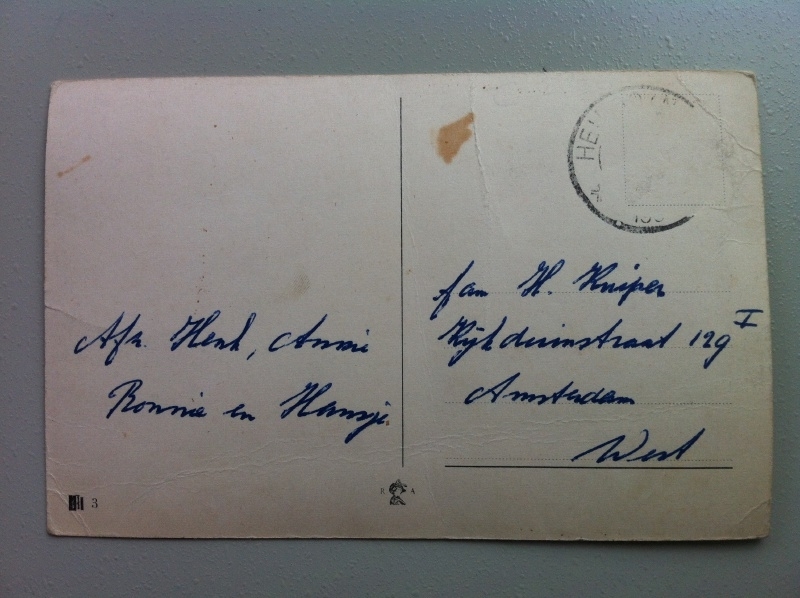 Afz. Henk, Annie
Ronnie en Hansje.
fam H. Kuiper
Kijkduinstraat 129 I
Amsterdam
West
3
R A
HE